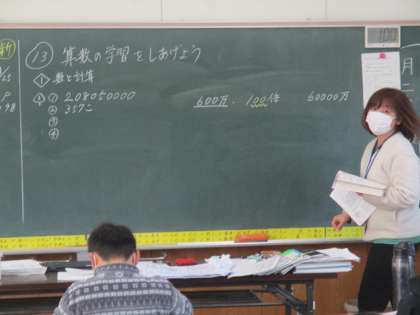 ⑬ 算数の学習をしあげよう
① 数と計算
① 208050000
② 357こ
③
④
600万 . 100倍 60000万
100
月